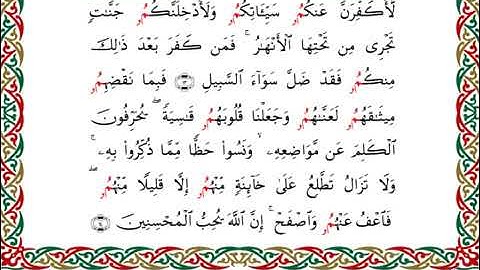 لَأُكَفِّرَنَّ عَنكُمُۥ سَيِّـَٔاتِكُمُۥ وَلَأُدْخِلَنَّكُمُۥ جَنَّٰتٍ
تَجْرِى مِن تَحْتِهَا ٱلْأَنْهَٰرُ ۚ فَمَن كَفَرَ بَعْدَ ذَٰلِكَ
مِنكُمُۥ فَقَدْ ضَلَّ سَوَآءَ ٱلسَّبِيلِ ۝ فَبِمَا نَقْضِهِمُۥ
مِيثَٰقَهُمُۥ لَعَنَّٰهُمُۥ وَجَعَلْنَا قُلُوبَهُمُۥ قَٰسِيَةً ۖ يُحَرِّفُونَ
ٱلْكَلِمَ عَن مَّوَاضِعِهِۦ ۙ وَنَسُوا۟ حَظًّا مِّمَّا ذُكِّرُوا۟ بِهِۦ ۚ
وَلَا تَزَالُ تَطَّلِعُ عَلَىٰ خَآئِنَةٍ مِّنْهُمُۥ إِلَّا قَلِيلًا مِّنْهُمُۥ ۖ
فَٱعْفُ عَنْهُمُۥ وَٱصْفَحْ ۚ إِنَّ ٱللَّهَ يُحِبُّ ٱلْمُحْسِنِينَ ۝